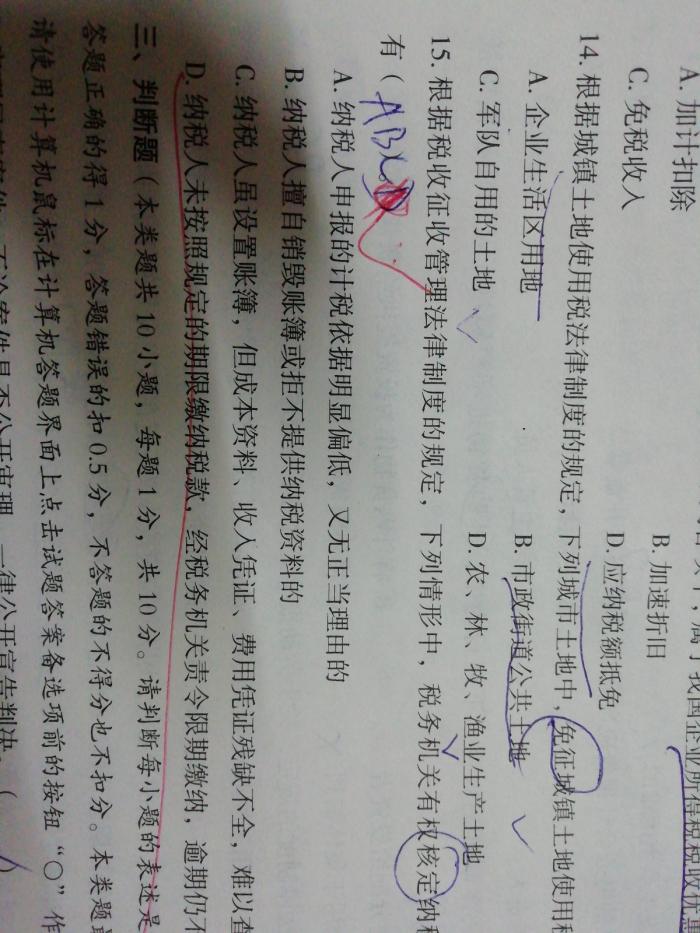 A. 加计扣除
B. 加速折旧
C. 免税收入
D. 应纳税额抵免
14. 根据城镇土地使用税法律制度的规定，下列城市土地中，免征城镇土地使用
A. 企业生活区用地
B. 市政街道公共土地
C. 军队自用的土地
D. 农、林、牧、渔业生产土地
15. 根据税收征收管理法律制度的规定，下列情形中，税务机关有权核定纳
有（ ABCD
A. 纳税人申报的计税依据明显偏低，又无正当理由的
B. 纳税人擅自销毁账簿或拒不提供纳税资料的
C. 纳税人虽设置账簿，但成本资料、收入凭证、费用凭证残缺不全，难以查
D. 纳税人未按照规定的期限缴纳税款，经税务机关责令限期缴纳，逾期仍不
三、判断题（本类题共 10 小题，每题 1 分，共 10 分。请判断每小题的表述是
答题正确的得 1 分，答题错误的扣 0.5 分，不答题的不得分也不扣分。本类题
请使用计算机鼠标在计算机答题界面上点击试题答案备选项前的按钮“○”作
不论案件是否公开审理，一律公开宣告判决。（